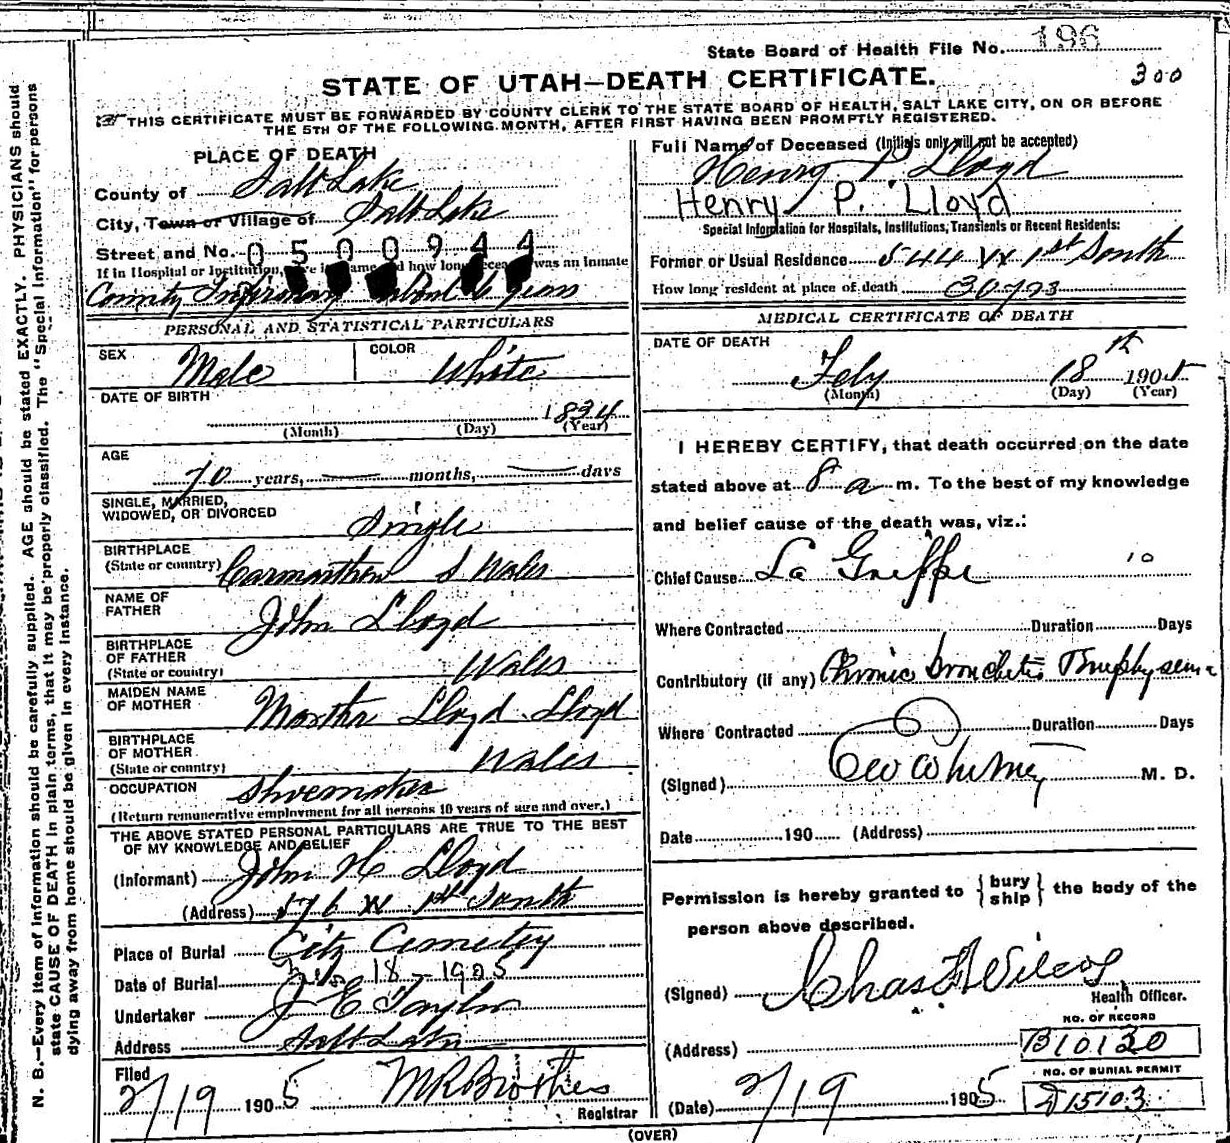 State Board of Health File No. 196
300
STATE OF UTAH—DEATH CERTIFICATE.
THIS CERTIFICATE MUST BE FORWARDED BY COUNTY CLERK TO THE STATE BOARD OF HEALTH, SALT LAKE CITY, ON OR BEFORE
THE 5TH OF THE FOLLOWING MONTH, AFTER FIRST HAVING BEEN PROMPTLY REGISTERED.
PLACE OF DEATH
County of Salt Lake
City, Town or Village of Salt Lake
Street and No. 0500944
If in Hospital or Institution, name and how long was an inmate
County Infirmary about 6 years
PERSONAL AND STATISTICAL PARTICULARS
SEX Male COLOR White
DATE OF BIRTH
1834
(Month) (Day) (Year)
AGE
70 years, months, days
SINGLE, MARRIED,
WIDOWED, OR DIVORCED Single
BIRTHPLACE
(State or country) Carmarthen S Wales
NAME OF
FATHER John Lloyd
BIRTHPLACE
OF FATHER
(State or country) Wales
MAIDEN NAME
OF MOTHER Martha Lloyd Lloyd
BIRTHPLACE
OF MOTHER
(State or country) Wales
OCCUPATION Shoemaker
(Return remunerative employment for all persons 10 years of age and over.)
THE ABOVE STATED PERSONAL PARTICULARS ARE TRUE TO THE BEST
OF MY KNOWLEDGE AND BELIEF
(Informant) John H Lloyd
(Address) 576 W 1st South
Place of Burial City Cemetery
Date of Burial 18-1905
Undertaker J E Taylor
Address Salt Lake
Filed
2/19 1905
Registrar
Full Name of Deceased (Initials only will not be accepted)
Henry P Lloyd
Henry P. Lloyd
Special Information for Hospitals, Institutions, Transients or Recent Residents:
Former or Usual Residence 544 W 1st South
How long resident at place of death 30 yrs
MEDICAL CERTIFICATE OF DEATH
DATE OF DEATH
Feby 18th 1905
(Month) (Day) (Year)
I HEREBY CERTIFY, that death occurred on the date
stated above at 8 a m. To the best of my knowledge
and belief cause of the death was, viz.:
Chief Cause La Grippe 10
Where Contracted Duration Days
Contributory (if any) Chronic Bronchitis Emphysema
Where Contracted Duration Days
(Signed) M. D.
Date 190 (Address)
Permission is hereby granted to { bury ship } the body of the
person above described.
(Signed) Chas
Health Officer.
NO. OF RECORD
(Address) B10120
NO. OF BURIAL PERMIT
(Date) 2/19 1905 15103
(OVER)
N. B.—Every item of information should be carefully supplied. AGE should be stated EXACTLY. PHYSICIANS should
state CAUSE OF DEATH in plain terms, that it may be properly classified. The "Special Information" for persons
dying away from home should be given in every instance.